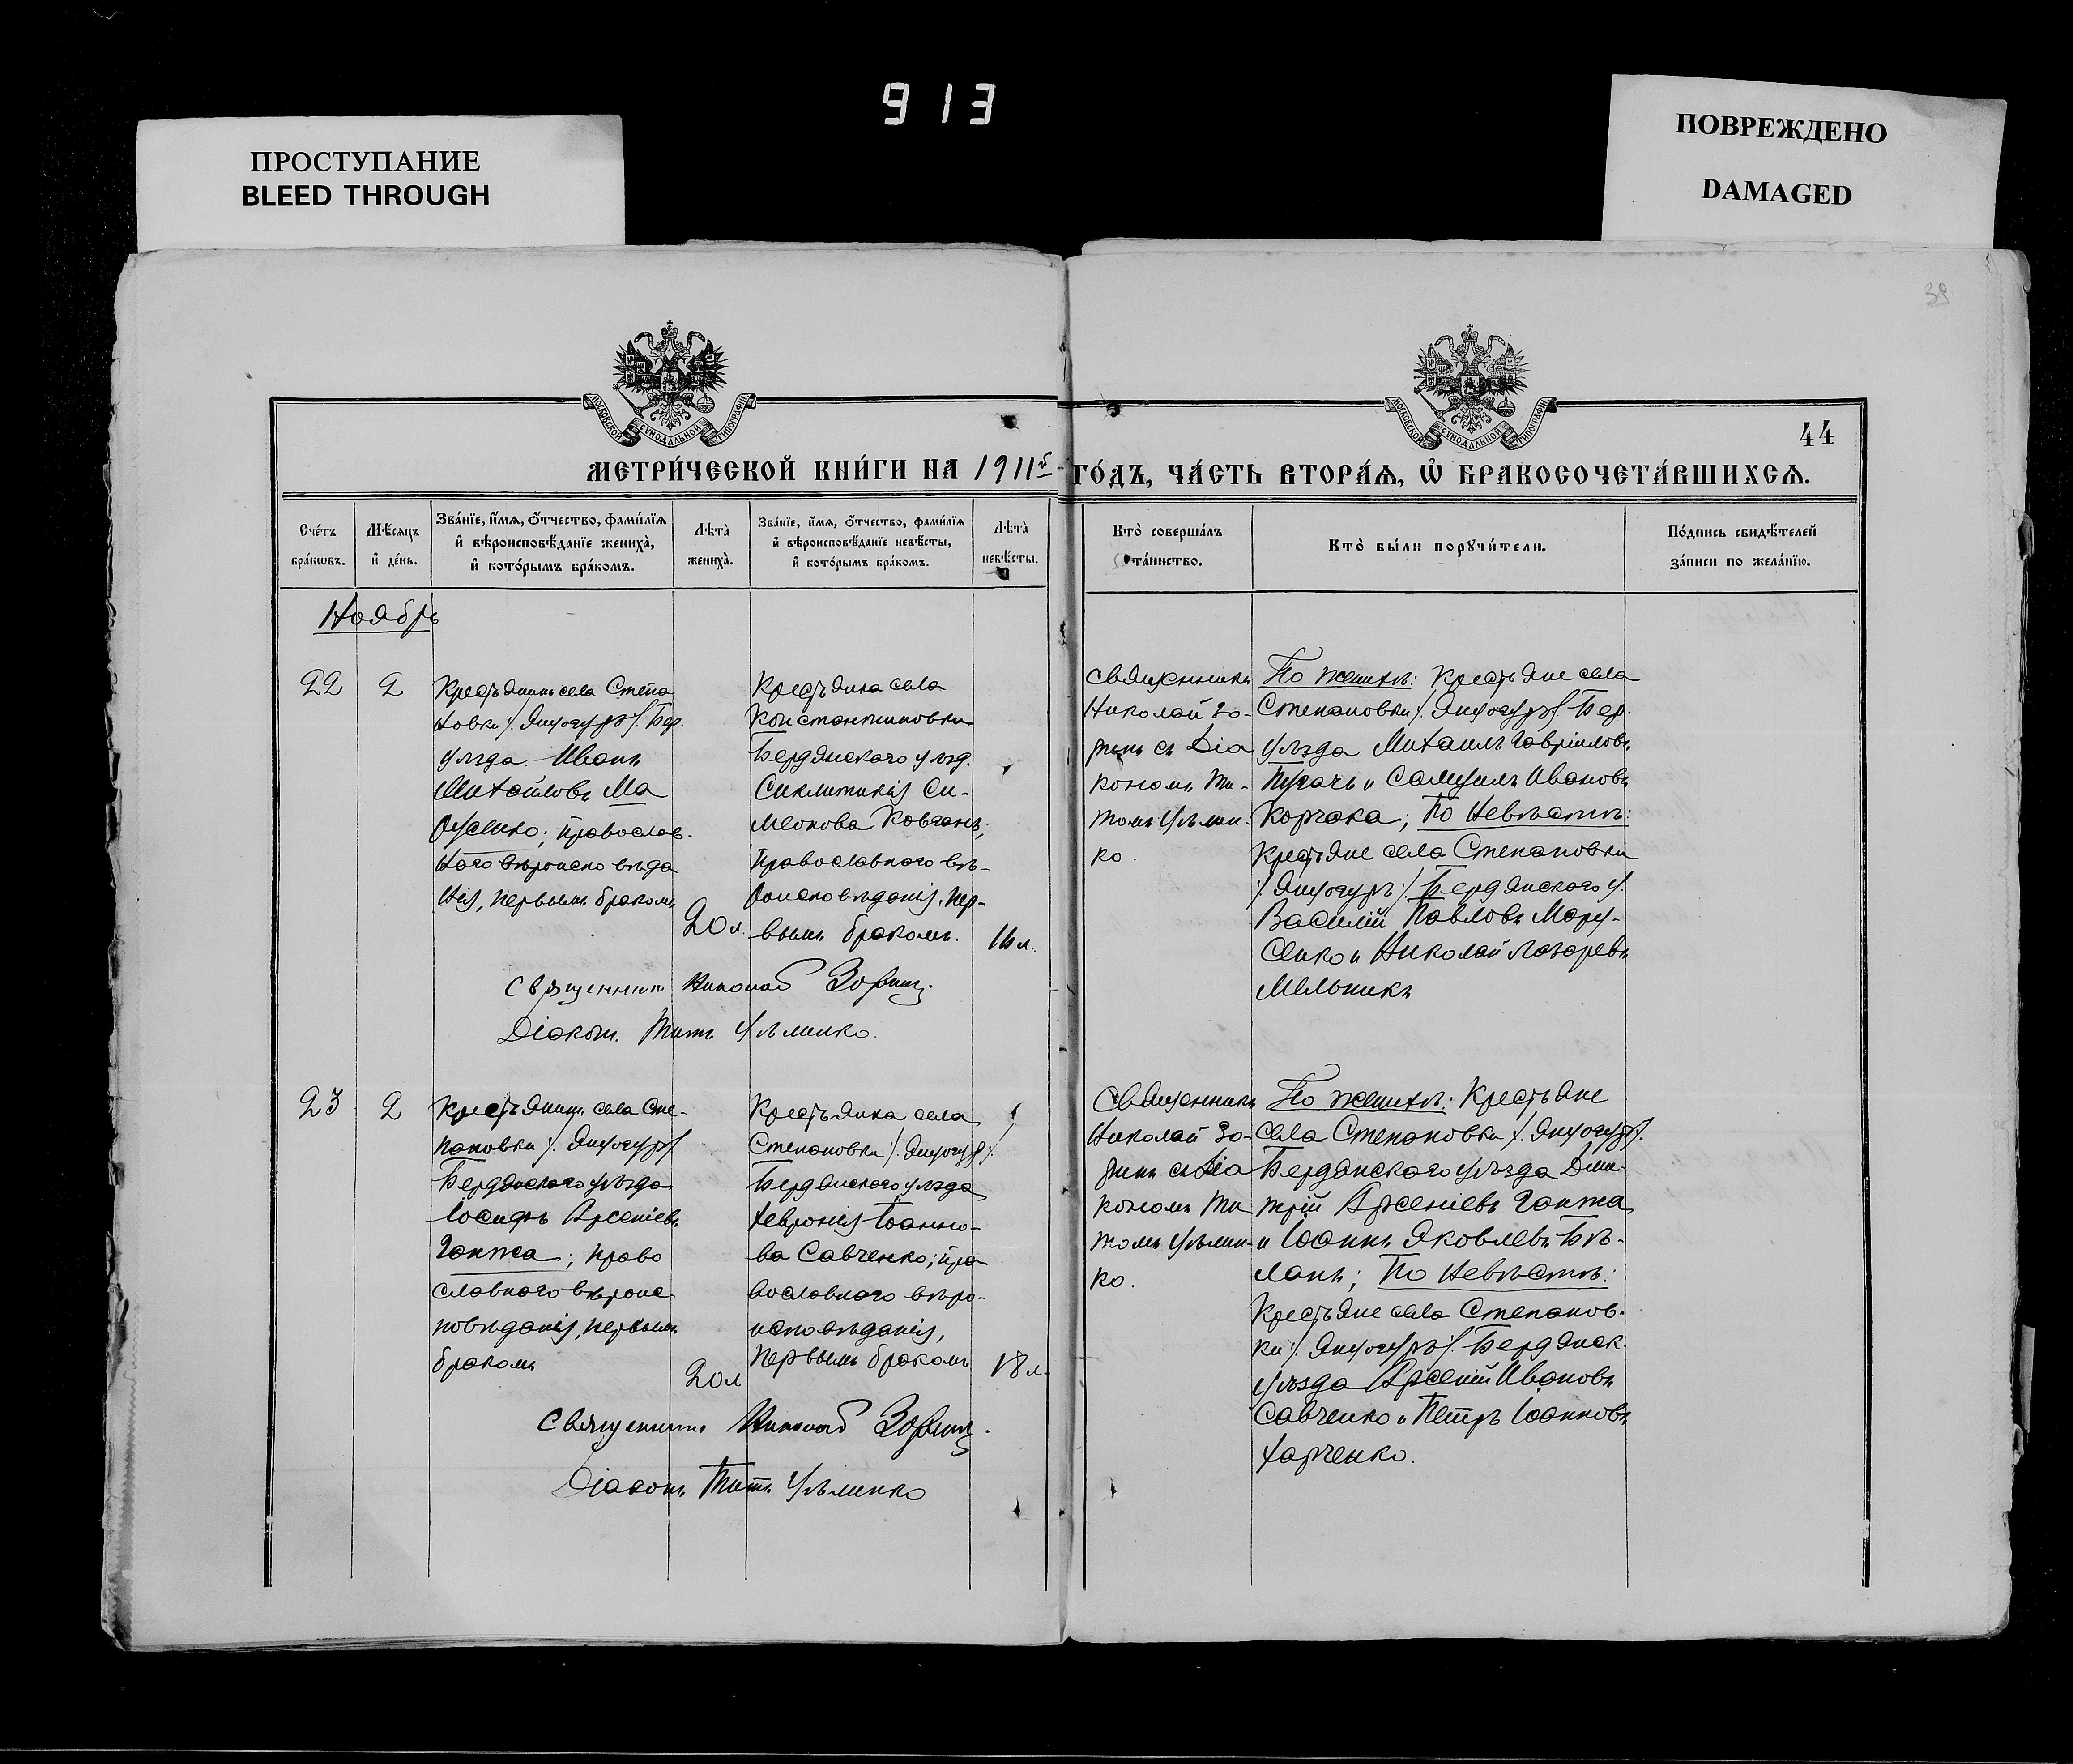 913
ПРОСТУПАНИЕ
BLEED THROUGH
ПОВРЕЖДЕНО
DAMAGED
39
МОСКОВСКОЙ СѴНОДАЛЬНОЙ ТИПОГРАФІИ
МОСКОВСКОЙ СѴНОДАЛЬНОЙ ТИПОГРАФІИ
44
МЕТРИ́ЧЕСКОЙ КНИ́ГИ НА 1911й ГО́ДЪ, ЧА́СТЬ ВТОРА́Ѧ, Ѡ҆ БРАКОСОЧЕТА́ВШИХСѦ.
Сче́тъ бра́кѡвъ.
Мѣ́сѧцъ и҆ де́нь.
Зва́нїе, и҆́мѧ, ѻ҆́тчество, фами́лїѧ и҆ вѣроисповѣ́данїе жениха̀, и҆ кото́рымъ бра́комъ.
Лѣта̀ жениха̀.
Зва́нїе, и҆́мѧ, ѻ҆́тчество, фами́лїѧ и҆ вѣроисповѣ́данїе невѣ́сты, и҆ кото́рымъ бра́комъ.
Лѣта̀ невѣ́сты.
Кто̀ соверша́лъ та́инство.
Кто̀ бы́ли порꙋчи́тели.
По́дпись свидѣ́телей за́писи по жела́нїю.
Ноябрь
22
2
Крестьянинъ села Степа
новки /. Янчогуръ /. Бер.
уѣзда Иванъ
Михайловъ Ма
русенко; православ-
наго вѣроисповѣда
нія, первымъ бракомъ
20 л.
Крестьянка села
Константиновки
Бердянскаго уѣзд.
Синклитикія Си-
меонова Ковганъ;
православнаго вѣ-
роисповѣданія, пер-
вымъ бракомъ.
16 л.
Священникъ
Николай Зо-
ринъ съ діа
кономъ Ти-
томъ Уѣмин-
ко.
По женихѣ: Крестьяне села
Степановки /. Янчогуръ /. Бер.
уѣзда Михаилъ Гавріиловъ
Пугачъ и Самуилъ Ивановъ
Корчака; По невѣстѣ:
Крестьяне села Степановки
/. Янчогуръ /. Бердянскаго у.
Василій Павловъ Мару-
сенко и Николай Лазаревъ
Мельникъ
Священникъ Николай Зоринъ.
Діаконъ Титъ Уѣминко.
23
2
Крестьянинъ села Сте-
пановки /. Янчогуръ /.
Бердянскаго уѣзда
Іосифъ Арсеніевъ
Гантжа; право
славнаго вѣроис-
повѣданія, первымъ
бракомъ
20 л
Крестьянка села
Степановки /. Янчогуръ /.
Бердянскаго уѣзда
Февронія Іоанно-
ва Савченко; пра
вославнаго вѣро-
исповѣданія,
первымъ бракомъ
18 л.
Священникъ
Николай Зо-
ринъ съ діа
кономъ Ти
томъ Уѣмин-
ко.
По женихѣ: Крестьяне
села Степановки /. Янчогуръ /.
Бердянскаго уѣзда Дми-
трій Арсеніевъ Гантжа
и Іоаннъ Яковлевъ Бѣ-
ланъ; По невѣстѣ:
Крестьяне села Степанов-
ки /. Янчогуръ /. Бердянск.
уѣзда Арсеній Ивановъ
Савченко и Петръ Іоанновъ
Харченко.
Священникъ Николай Зоринъ.
Діаконъ Титъ Уѣминко